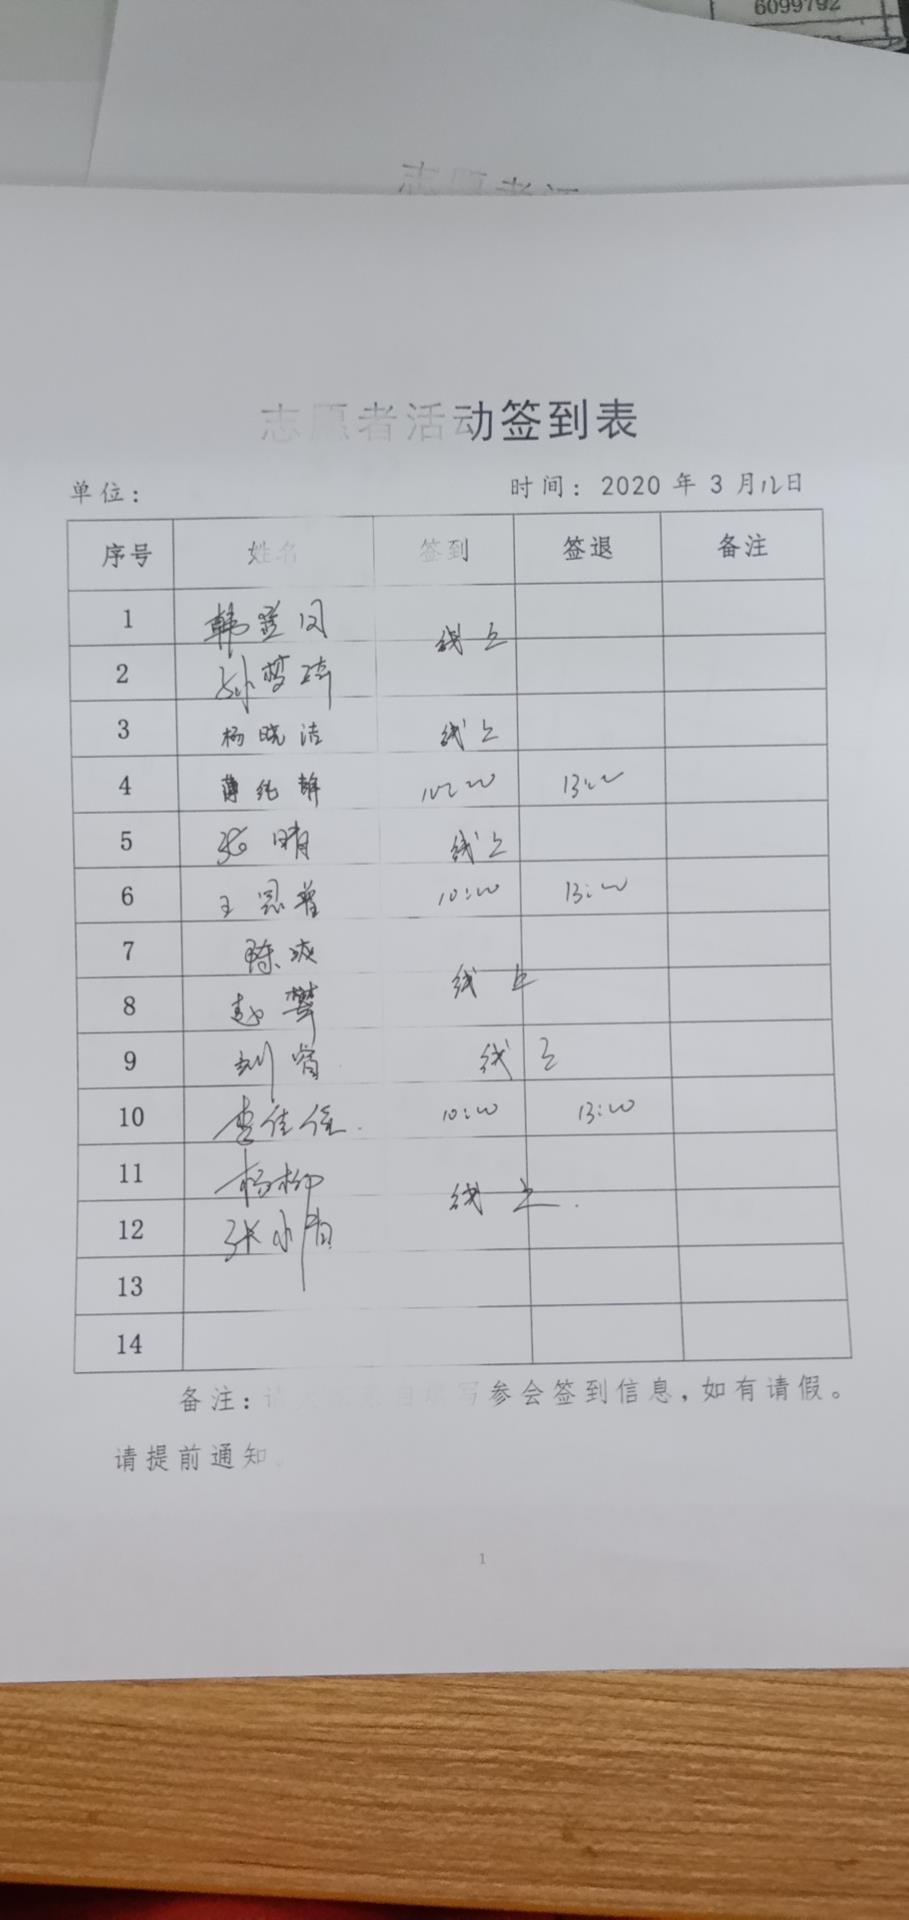 6099792
志愿者活
志愿者活动签到表
单位: 时间: 2020 年 3 月 日
序号 姓名 签到 签退 备注
1 韩 线上
2 孙梦琦
3 杨晓洁 线上
4 薄纯静
5 张晴 线上
6 王思普 10:00 13:00
7 陈波
8 赵攀 线上
9 刘睿 线上
10 李佳 10:00 13:00
11 杨柳 线上
12 张
13
14
备注: 请 填写参会签到信息,如有请假。
请提前通知。
1